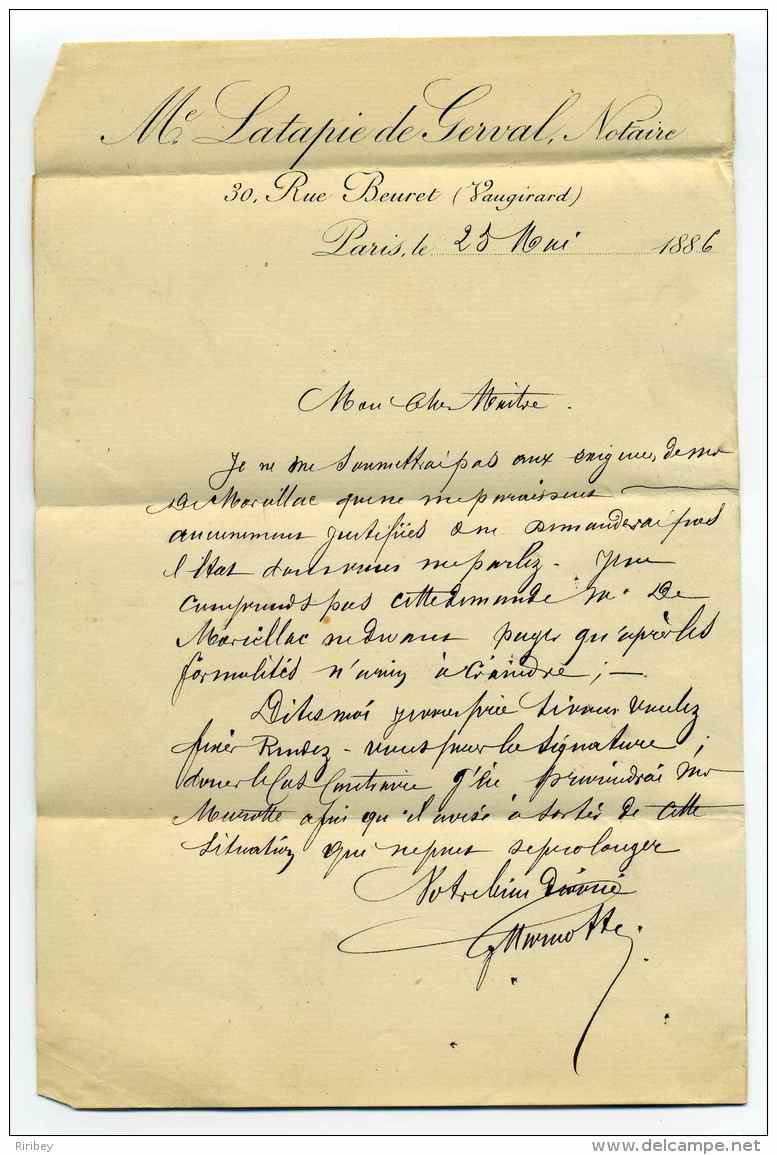 Me. Latapie de Gerval, Notaire
30, Rue Beuret (Vaugirard)
Paris, le 25 Mai 1886
Mon Cher Maître.
Je ne me soumettrai pas aux exigences de Mr
De Marcillac qui ne me paraissent
aucunement justifiées & ne demanderai pas
l'état dont vous me parlez. Je ne
comprends pas cette demande M. De
Marcillac ne devant payer qu'après les
formalités n'a rien à craindre ; —
Dites moi je vous prie si vous voulez
fixer Rendez-vous pour la signature ;
dans le Cas Contraire j'en préviendrai Mr
afin qu'il avise à sortir de cette
situation qui ne peut se prolonger
Votre bien dévoué
Marmotte
Riribey
www.delcampe.net